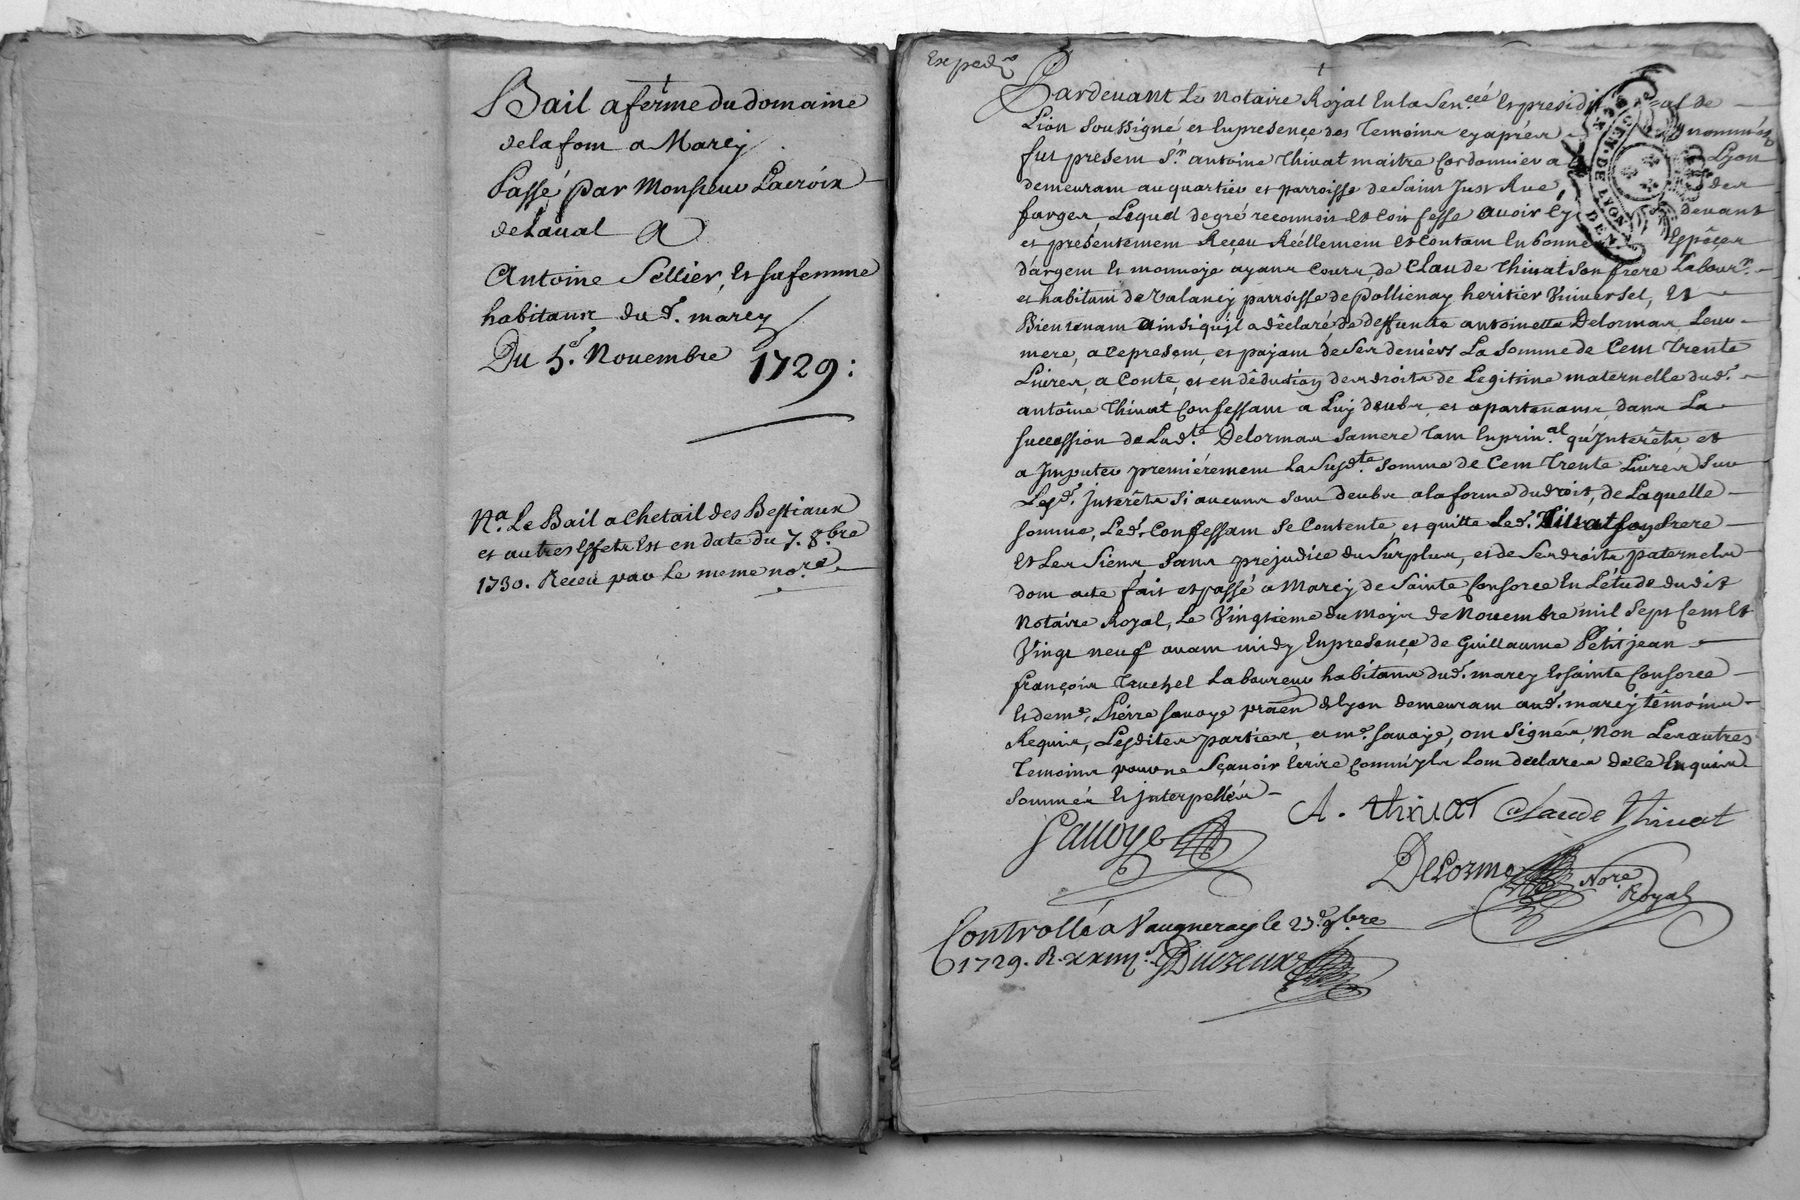 Bail a ferme du domaine
de la fom a Marcy
Passé par Monsieur Lacroix
de Laval A
Antoine Sellier, et sa femme
habitans du d. marcy
Du 5.e Novembre 1729:
Na. Le Bail a Chetail des Bestiaux
et autres Effets Est en date du 7. 8.bre
1730. Receu par le meme no.re
Expedié
Pardevant Le Notaire Royal En la Sen.ceé Et presidial de
Lion Soussigné et En presence des Temoins cy aprés nommés
fut present S.r antoine Thivat maitre Cordonnier a Lyon
demeurant au quartier et parroisse de Saint Just Rue des
farges Lequel de gré reconnoit et Confesse avoir Cy devant
et presentement Reçeu Réellement et Contant En bonne Espéces
d'argent et monnoye ayans Cours, de Claude Thivat son frere Labour.r
et habitant de Valancy parroisse de Pollienay heritier Universel, Et
Bientenant Ainsi qu'jl a déclaré, de deffunte antoinette Delorman, Leur
mere, a ce present, et payant de Ses deniers La Somme de Cent Trente
Livres, a Conte, et en déduction des droits de Legitime maternelle dud.t
antoine Thivat Confessant a Luy deubs et apartenans dans La
succession de Lad.te Delorman sa mere Tant En prin.al qu'Jnterêts et
a Jmputer premiérement La Susd.te Somme de Cent Trente Livres Sur
Lesd. Jnterêts Si aucuns sont deubs a la forme du droit, de Laquelle
somme, Led. Confessant Se Contente et quitte Led. Thivat soy frere
Et Les Siens, Sans prejudice du Surplus, et de Ses droits paternels
dont acte fait et passé a Marcy de Sainte Consorce En L'étude dudit
Notaire Royal, Le Vingtieme du Mois de Novembre mil Sept Cent Et
Vingt neuf avant midy En presence de Guillaume Petitjean
françois Truchel Laboureur habitans dud. marcy Et Sainte Consorce
Et de m.e Pierre Savoye praen de Lyon demeurant aud. marcy témoins
Requis, Lesdites parties, et m.e Savoye, ont Signés, Non Les autres
Temoins pour ne Sçavoir Ecrire Comm'jls L'ont declarés de ce Enquis
Sommés Et Jnterpellés
A. thivat Claude Thivat
Savoye
Delorme Nore Royal
Controllé a Vaugneray le 23.e 9.bre
1729. R. xxiiij s.